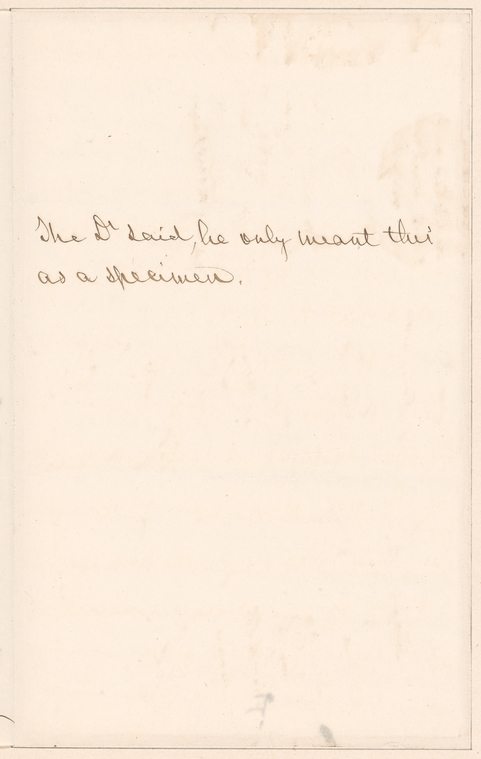 The Dr said, he only meant this
as a specimen.